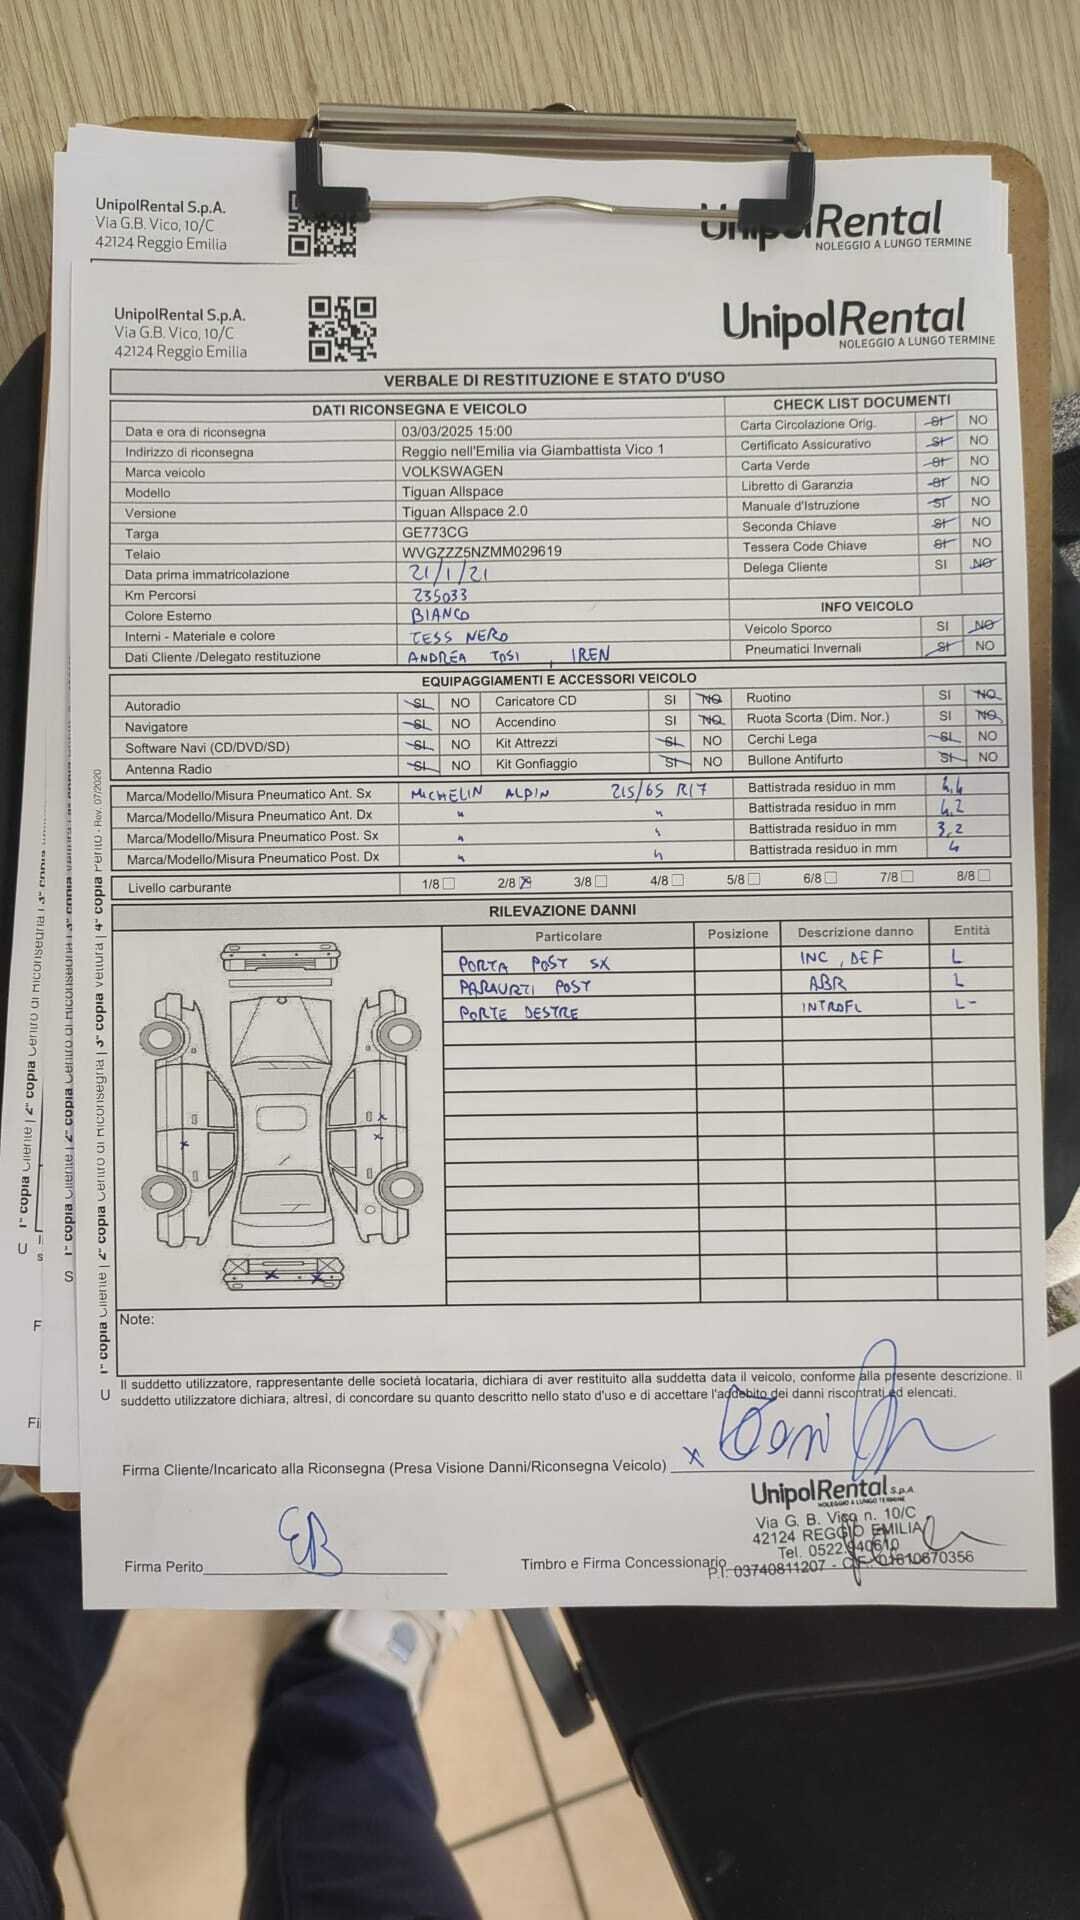 UnipolRental S.p.A.
Via G.B. Vico, 10/C
42124 Reggio Emilia
UnipolRental
NOLEGGIO A LUNGO TERMINE
UnipolRental S.p.A.
Via G.B. Vico, 10/C
42124 Reggio Emilia
UnipolRental
NOLEGGIO A LUNGO TERMINE
VERBALE DI RESTITUZIONE E STATO D'USO
DATI RICONSEGNA E VEICOLO
CHECK LIST DOCUMENTI
Data e ora di riconsegna 03/03/2025 15:00 Carta Circolazione Orig. SI NO
Indirizzo di riconsegna Reggio nell'Emilia via Giambattista Vico 1 Certificato Assicurativo SI NO
Marca veicolo VOLKSWAGEN Carta Verde SI NO
Modello Tiguan Allspace Libretto di Garanzia SI NO
Versione Tiguan Allspace 2.0 Manuale d'Istruzione SI NO
Targa GE773CG Seconda Chiave SI NO
Telaio WVGZZZ5NZMM029619 Tessera Code Chiave SI NO
Data prima immatricolazione 21/1/21 Delega Cliente SI NO
Km Percorsi 235033
Colore Esterno BIANCO INFO VEICOLO
Interni - Materiale e colore TESS NERO Veicolo Sporco SI NO
Dati Cliente /Delegato restituzione ANDREA TOSI, IREN Pneumatici Invernali SI NO
EQUIPAGGIAMENTI E ACCESSORI VEICOLO
Autoradio SI NO Caricatore CD SI NO Ruotino SI NO
Navigatore SI NO Accendino SI NO Ruota Scorta (Dim. Nor.) SI NO
Software Navi (CD/DVD/SD) SI NO Kit Attrezzi SI NO Cerchi Lega SI NO
Antenna Radio SI NO Kit Gonfiaggio SI NO Bullone Antifurto SI NO
Marca/Modello/Misura Pneumatico Ant. Sx MICHELIN ALPIN 215/65 R17 Battistrada residuo in mm
Marca/Modello/Misura Pneumatico Ant. Dx " " Battistrada residuo in mm 4,2
Marca/Modello/Misura Pneumatico Post. Sx " " Battistrada residuo in mm 3,2
Marca/Modello/Misura Pneumatico Post. Dx " " Battistrada residuo in mm 4
Livello carburante 1/8 2/8 3/8 4/8 5/8 6/8 7/8 8/8
RILEVAZIONE DANNI
Particolare Posizione Descrizione danno Entità
PORTA POST SX INC, DEF L
PARAURTI POST ABR L
PORTE DESTRE INTROFL L-
Note:
Il suddetto utilizzatore, rappresentante delle società locataria, dichiara di aver restituito alla suddetta data il veicolo, conforme alla presente descrizione. Il
suddetto utilizzatore dichiara, altresì, di concordare su quanto descritto nello stato d'uso e di accettare l'addebito dei danni riscontrati ed elencati.
Firma Cliente/Incaricato alla Riconsegna (Presa Visione Danni/Riconsegna Veicolo) x
UnipolRental S.p.A.
NOLEGGIO A LUNGO TERMINE
Via G. B. Vico n. 10/C
42124 REGGIO EMILIA
Tel. 0522.940610
Firma Perito EB Timbro e Firma Concessionario
P.I. 03740811207 - C.F. 01610670356
1ª copia Cliente | 2ª copia Centro di Riconsegna | 3ª copia Vettura | 4ª copia Perito - Rev. 07/2020